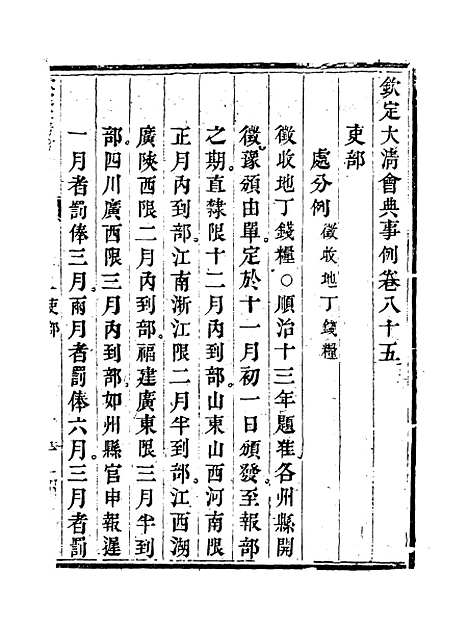 欽定大清會典事例卷八十五
吏部
處分例徵收地丁錢糧
徵收地丁錢糧○順治十三年題准各州縣開
徵豫頒由單定於十一月初一日頒發至報部
之期直隸限十二月內到部山東山西河南限
正月內到部江南浙江限二月半到部江西湖
廣陝西限二月內到部福建廣東限三月半到
部四川廣西限三月內到部如州縣官申報遲
一月者罰俸三月兩月者罰俸六月三月者罰
吏部